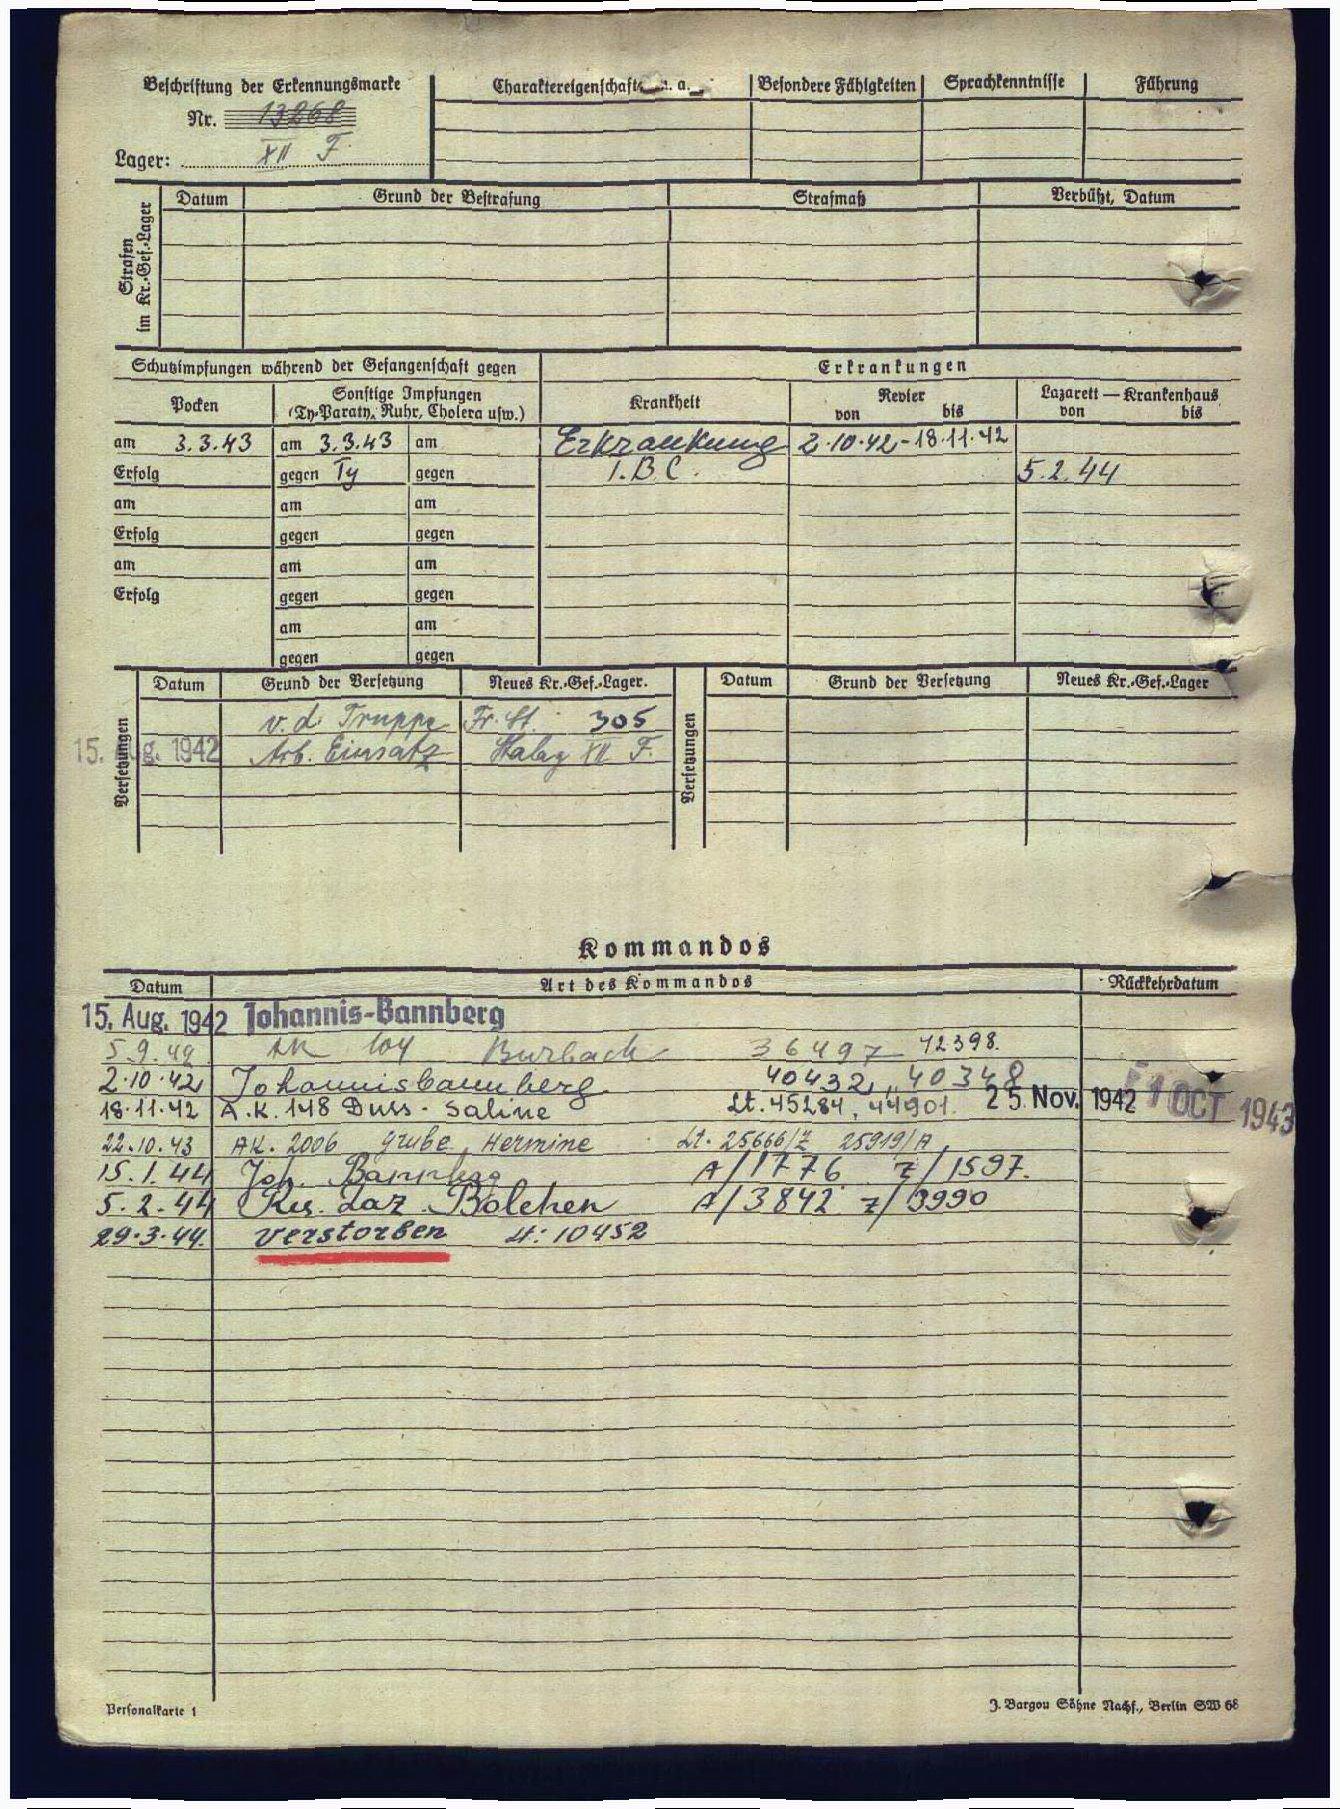 Beschriftung der Erkennungsmarke
Nr. 13268
Lager: XII F
Charaktereigenschaft u. a.
Besondere Fähigkeiten
Sprachkenntnisse
Führung
Strafen im Kr.-Gef.-Lager
Datum Grund der Bestrafung Strafmaß Verbüßt, Datum
Schutzimpfungen während der Gefangenschaft gegen
Erkrankungen
Pocken
Sonstige Impfungen
(Ty-Paraty, Ruhr, Cholera usw.)
Krankheit
Revier
von bis
Lazarett — Krankenhaus
von bis
am 3.3.43 am 3.3.43 am Erkrankung 2.10.42 - 18.11.42
Erfolg gegen Ty gegen T.B.C. 5.2.44
am am am
Erfolg gegen gegen
am am am
Erfolg gegen gegen
am am
gegen gegen
Versetzungen
Datum Grund der Versetzung Neues Kr.-Gef.-Lager.
v. d. Truppe Fr. St. 305
15. Aug. 1942 Arb. Einsatz Stalag XII F.
Versetzungen
Datum Grund der Versetzung Neues Kr.-Gef.-Lager
Kommandos
Datum Art des Kommandos Rückkehrdatum
15. Aug. 1942 Johannis-Bannberg
5.9.42 AK 104 Burbach 36497 42398.
2.10.42 Johannisbannberg 40432, 40348
18.11.42 A.K. 148 Duss-Saline Lt. 45284, 44901. 25. Nov. 1942 1 OCT 1943
22.10.43 AK. 2006 Grube Hermine Lt. 25666/Z 25919/A
15.1.44 Joh. Bannberg A/1776 Z/1597.
5.2.44 Res. Laz. Bolchen A/3842 Z/3990
29.3.44. verstorben Lt: 10452
Personalkarte 1
J. Bargou Söhne Nachf., Berlin SW 68